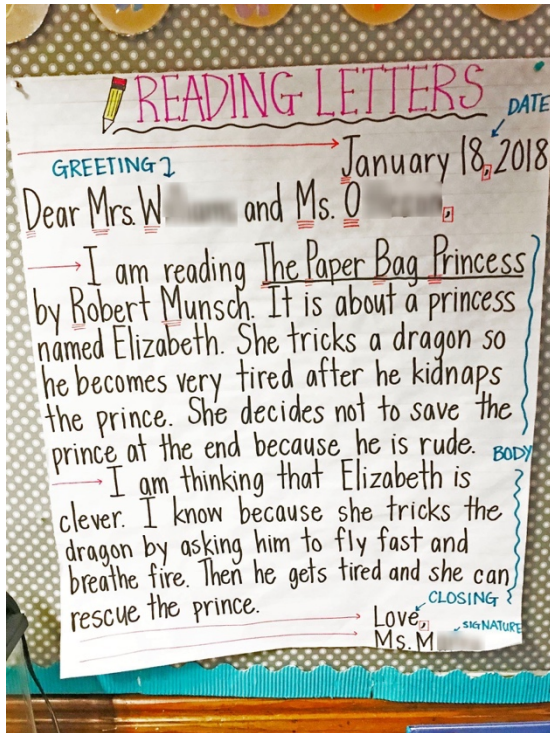 READING LETTERS
DATE
January 18, 2018
GREETING
Dear Mrs. W and Ms. O,
I am reading The Paper Bag Princess
by Robert Munsch. It is about a princess
named Elizabeth. She tricks a dragon so
he becomes very tired after he kidnaps
the prince. She decides not to save the
prince at the end because he is rude.
BODY
I am thinking that Elizabeth is
clever. I know because she tricks the
dragon by asking him to fly fast and
breathe fire. Then he gets tired and she can
rescue the prince.
CLOSING
Love,
SIGNATURE
Ms. M